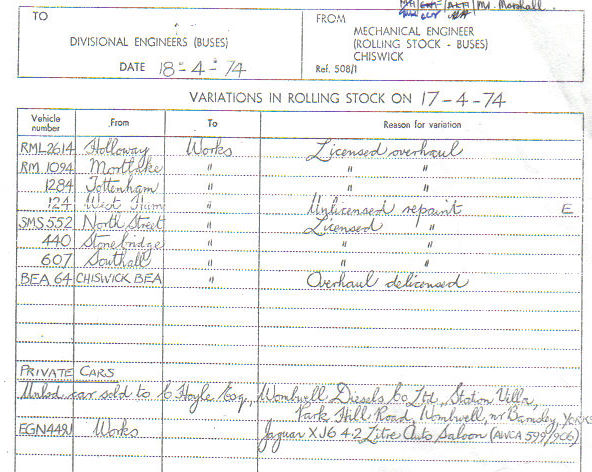 Mr. Marshall.
TO
DIVISIONAL ENGINEERS (BUSES)
DATE 18-4-74
FROM
MECHANICAL ENGINEER
(ROLLING STOCK - BUSES)
CHISWICK
Ref. 508/1
VARIATIONS IN ROLLING STOCK ON 17-4-74
Vehicle number From To Reason for variation
RML 2614 Holloway Works Licensed overhaul
RM 1094 Mortlake " " "
1284 Tottenham " " "
124 West Ham " Unlicensed repaint E
SMS 552 North Street " Licensed "
440 Stonebridge " " "
607 Southall " " "
BEA 64 CHISWICK BEA " Overhaul delicensed
PRIVATE CARS
car sold to Hoyle Esq., Wombwell Diesels Co Ltd, Station Villa,
Park Hill Road, Wombwell, nr Barnsley, YORKS
EGN449J Works Jaguar XJ6 4·2 Litre Auto Saloon (AVCA 599/906)